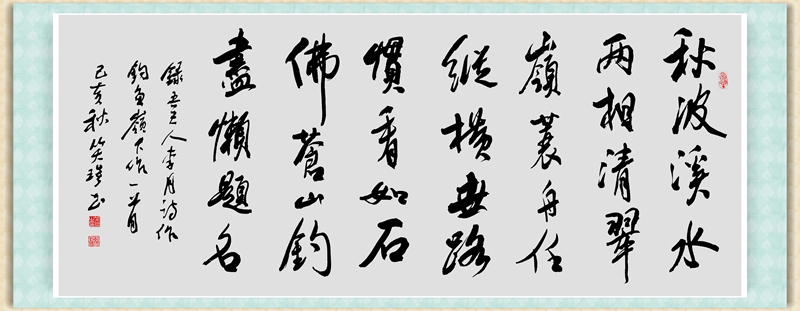 秋波溪水
两相清翠
嶺蓑舟任
縱橫世路
慣看如石
佛蒼山釣
盡懶題名
録吾人李月诗作
钓鱼嶺下作一首
己亥秋笑书